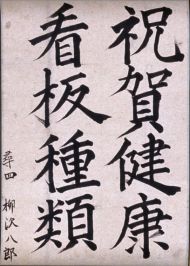 祝賀健康
看板種類
尋四 柳沢八郎